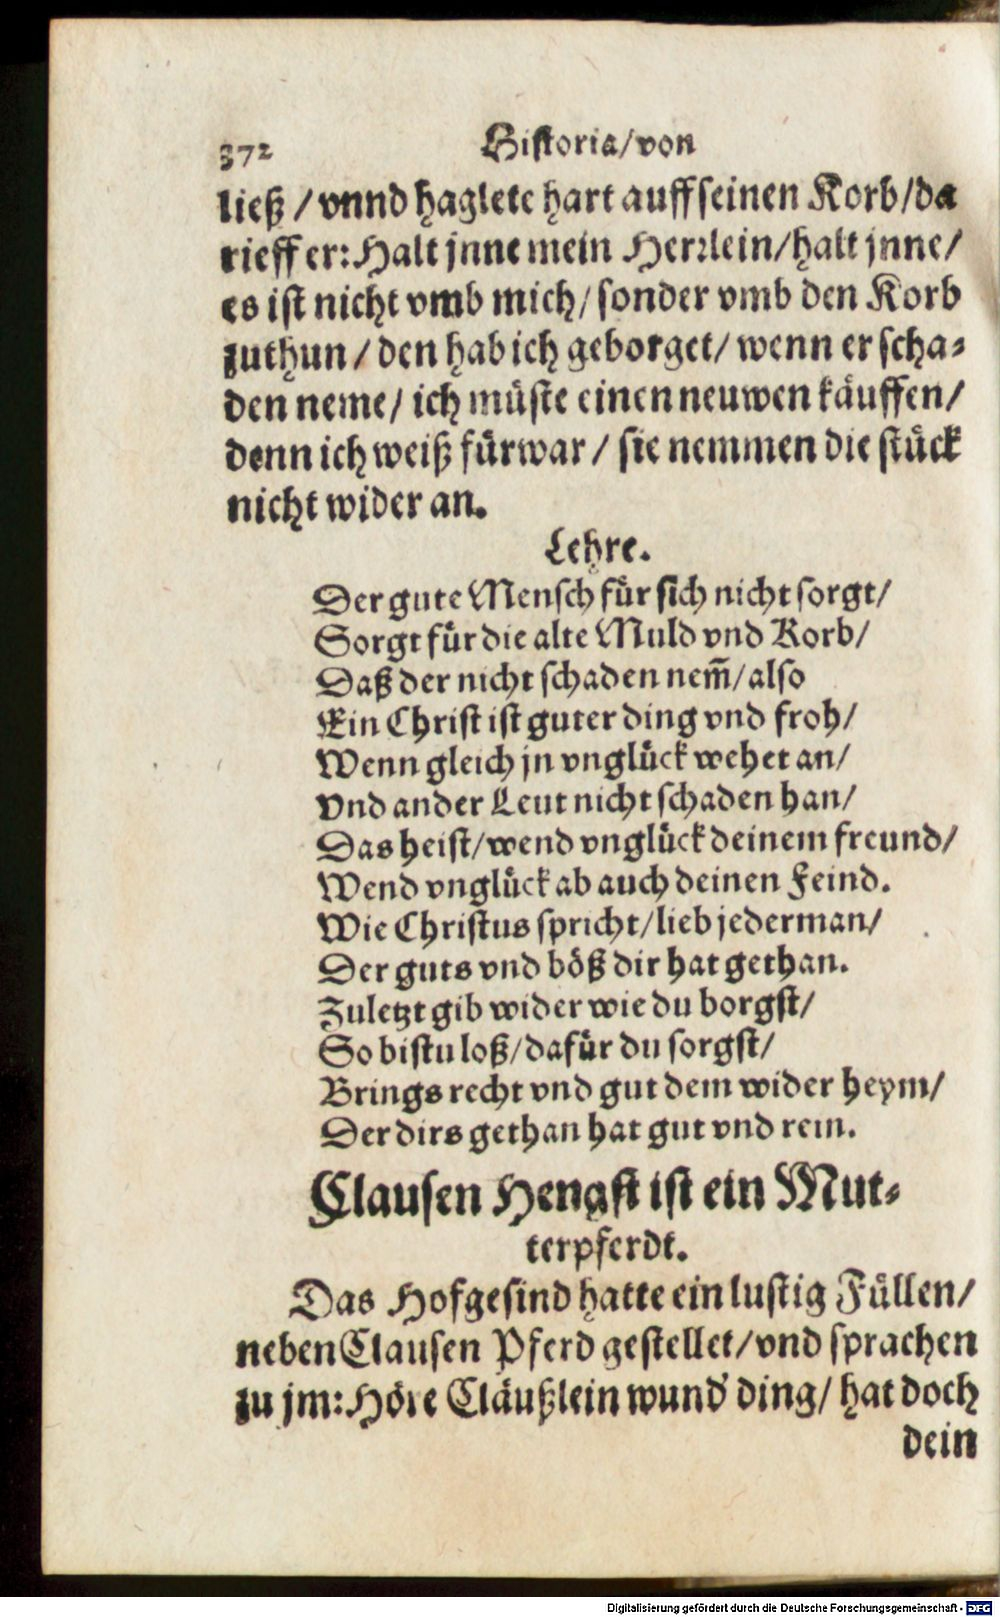 372 Historia/von
ließ / vnnd haglete hart auff seinen Korb/da
rieff er: Halt jnne mein Herrlein/halt jnne/
es ist nicht vmb mich/ sonder vmb den Korb
zuthun / den hab ich geborget/ wenn er scha-
den neme/ ich müste einen neuwen käuffen/
denn ich weiß fürwar / sie nemmen die stück
nicht wider an.
Lehre.
Der gute Mensch für sich nicht sorgt/
Sorgt für die alte Muld vnd Korb/
Daß der nicht schaden nem̃/also
Ein Christ ist guter ding vnd froh/
Wenn gleich jn vnglück wehet an/
Vnd ander Leut nicht schaden han/
Das heist/wend vnglück deinem freund/
Wend vnglück ab auch deinen Feind.
Wie Christus spricht/lieb jederman/
Der guts vnd böß dir hat gethan.
Zuletzt gib wider wie du borgst/
So bistu loß/dafür du sorgst/
Brings recht vnd gut dem wider heym/
Der dirs gethan hat gut vnd rein.
Clausen Hengst ist ein Mut-
terpferdt.
Das Hofgesind hatte ein lustig Füllen/
neben Clausen Pferd gestellet/vnd sprachen
zu jm: Höre Cläußlein wund' ding/ hat doch
dein
Digitalisierung gefördert durch die Deutsche Forschungsgemeinschaft - DFG